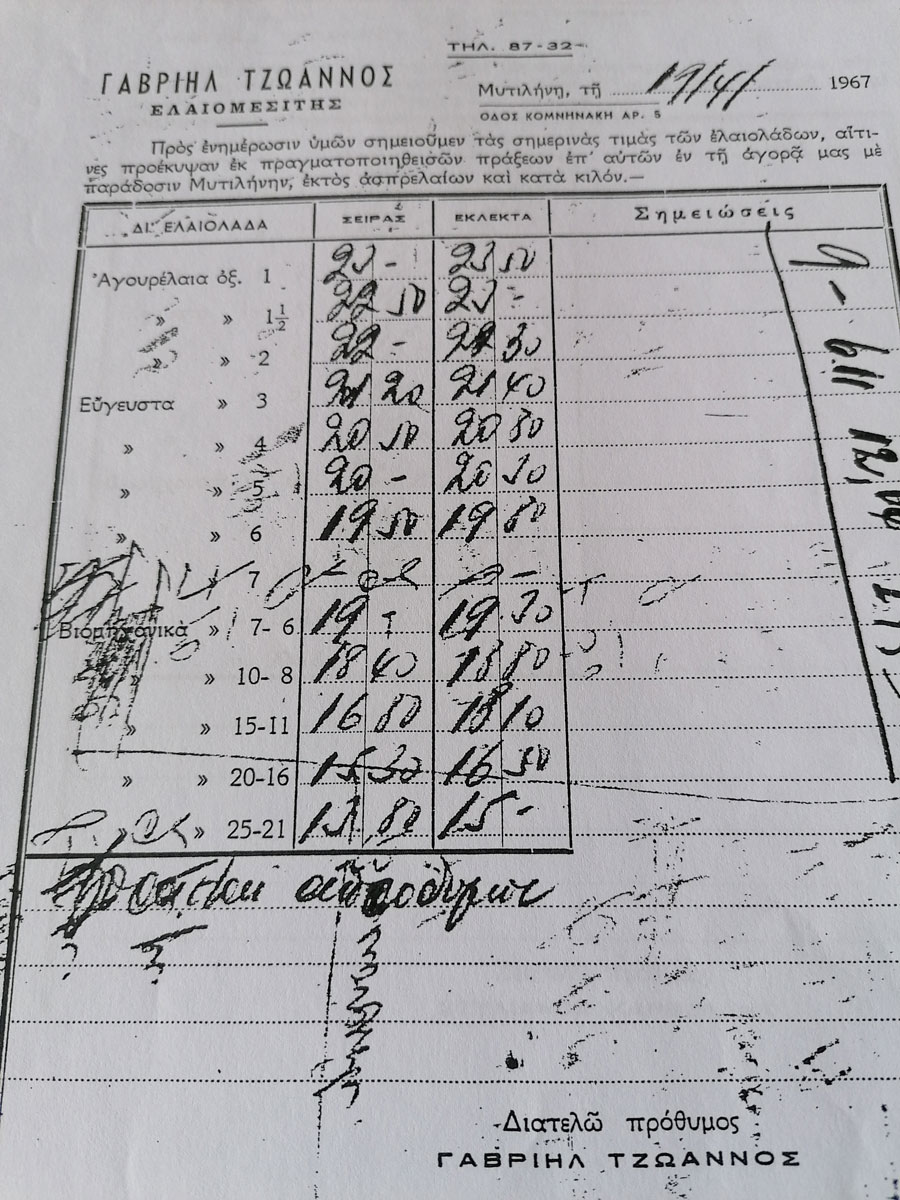 ΤΗΛ. 87-32
ΓΑΒΡΙΗΛ ΤΖΩΑΝΝΟΣ
ΕΛΑΙΟΜΕΣΙΤΗΣ
Μυτιλήνη, τῇ 19/4/ 1967
ΟΔΟΣ ΚΟΜΝΗΝΑΚΗ ΑΡ. 5
Πρὸς ἐνημέρωσιν ὑμῶν σημειοῦμεν τὰς σημερινὰς τιμὰς τῶν ἐλαιολάδων, αἵτι-
νες προέκυψαν ἐκ πραγματοποιηθεισῶν πράξεων ἐπ' αὐτῶν ἐν τῇ ἀγορᾷ μας μὲ
παράδοσιν Μυτιλήνην, ἐκτὸς ἀσπρελαίων καὶ κατὰ κιλόν.—
ΔΙ' ΕΛΑΙΟΛΑΔΑ ΣΕΙΡΑΣ ΕΚΛΕΚΤΑ Σημειώσεις
Ἀγουρέλαια ὀξ. 1 23 - 23 50
» » 1½ 22 50 23 -
» » 2 22 - 22 30
Εὔγευστα » 3 21 20 21 40
» » 4 20 50 20 80
» » 5 20 - 20 30
» » 6 19 50 19 80
» 7
Βιομηχανικὰ » 7- 6 19 - 19 30
» » 10- 8 18 40 18 80
» » 15-11 16 80 18 10
» » 20-16 15 30 16 50
» » 25-21 13 80 15 -
Διατελῶ πρόθυμος
ΓΑΒΡΙΗΛ ΤΖΩΑΝΝΟΣ